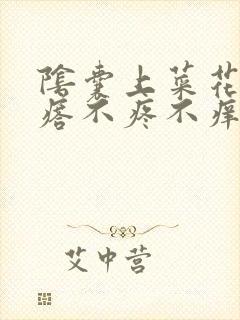 陰囊上菜花
瘩不疼不痒
艾中营